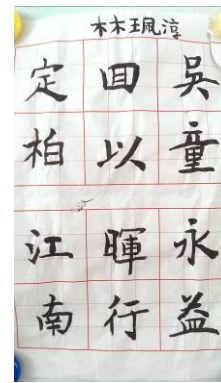 林珮淳
吳童永益
回以暉行
定柏江南